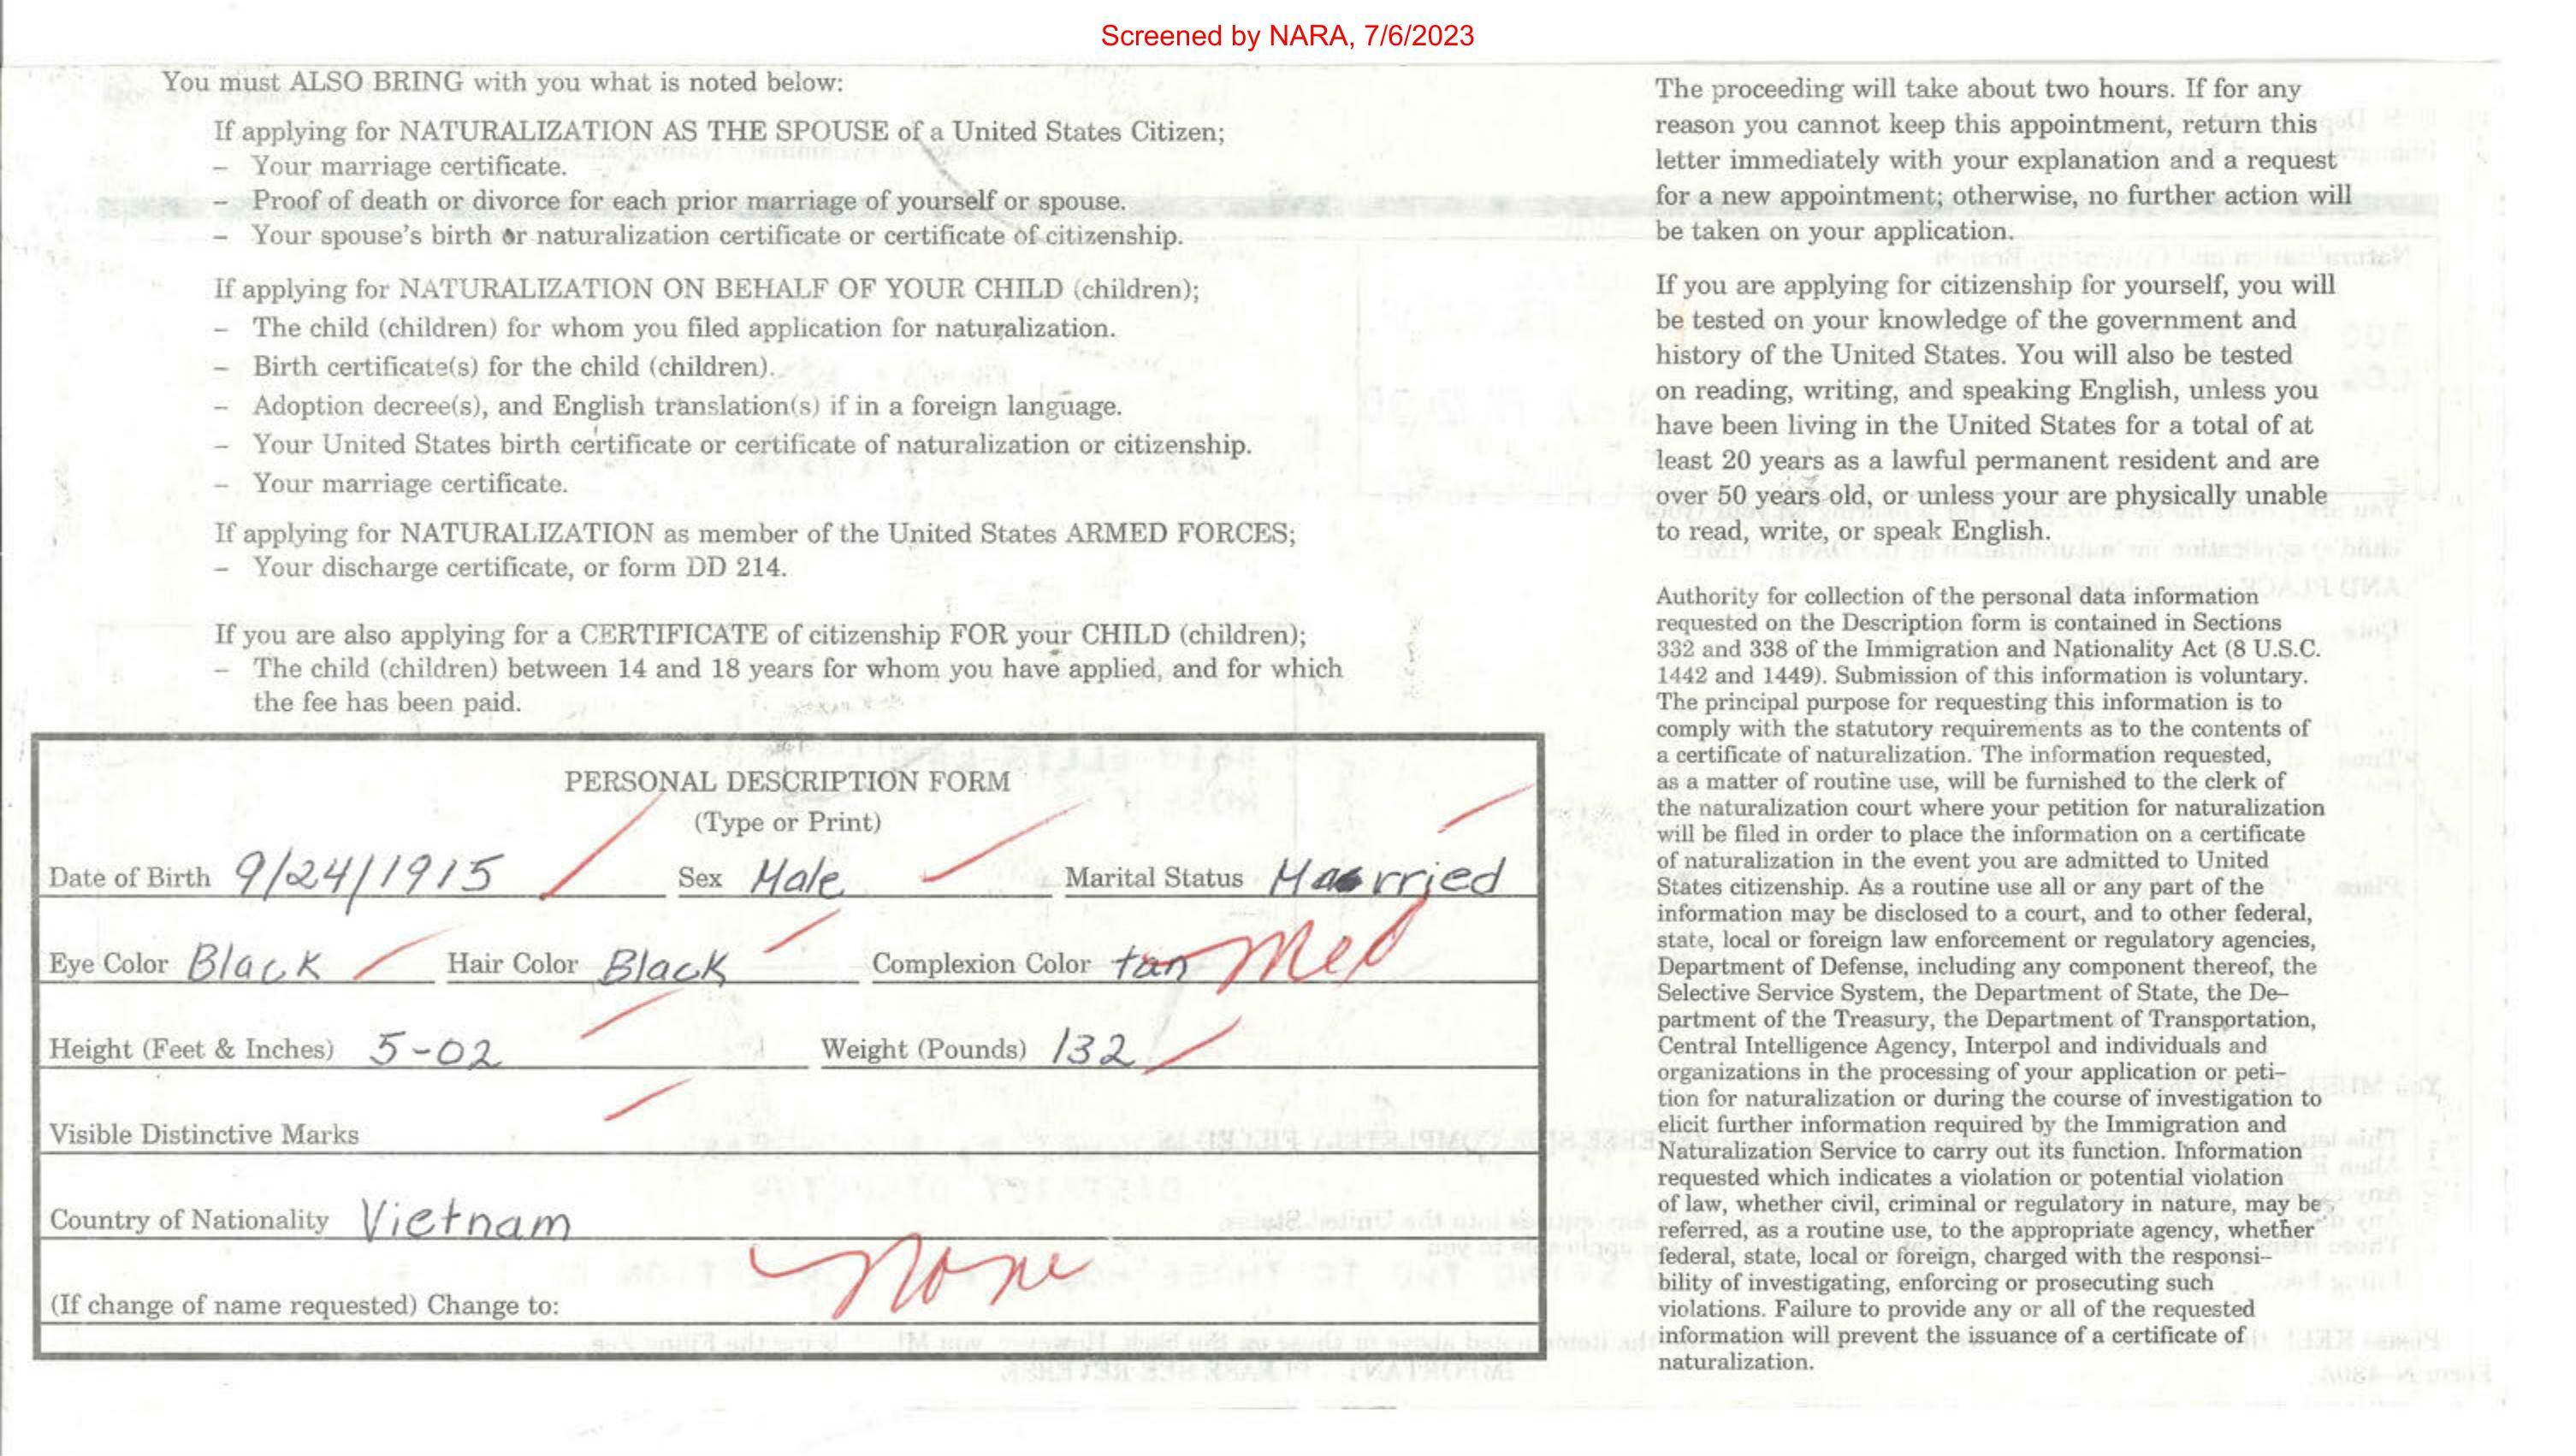 Screened by NARA, 7/6/2023
You must ALSO BRING with you what is noted below:
If applying for NATURALIZATION AS THE SPOUSE of a United States Citizen;
– Your marriage certificate.
– Proof of death or divorce for each prior marriage of yourself or spouse.
– Your spouse's birth or naturalization certificate or certificate of citizenship.
If applying for NATURALIZATION ON BEHALF OF YOUR CHILD (children);
– The child (children) for whom you filed application for naturalization.
– Birth certificate(s) for the child (children).
– Adoption decree(s), and English translation(s) if in a foreign language.
– Your United States birth certificate or certificate of naturalization or citizenship.
– Your marriage certificate.
If applying for NATURALIZATION as member of the United States ARMED FORCES;
– Your discharge certificate, or form DD 214.
If you are also applying for a CERTIFICATE of citizenship FOR your CHILD (children);
– The child (children) between 14 and 18 years for whom you have applied, and for which
the fee has been paid.
PERSONAL DESCRIPTION FORM
(Type or Print)
Date of Birth 9/24/1915 Sex Male Marital Status Married
Eye Color Black Hair Color Black Complexion Color tan Med
Height (Feet & Inches) 5-02 Weight (Pounds) 132
Visible Distinctive Marks
Country of Nationality Vietnam
(If change of name requested) Change to: none
The proceeding will take about two hours. If for any
reason you cannot keep this appointment, return this
letter immediately with your explanation and a request
for a new appointment; otherwise, no further action will
be taken on your application.
If you are applying for citizenship for yourself, you will
be tested on your knowledge of the government and
history of the United States. You will also be tested
on reading, writing, and speaking English, unless you
have been living in the United States for a total of at
least 20 years as a lawful permanent resident and are
over 50 years old, or unless your are physically unable
to read, write, or speak English.
Authority for collection of the personal data information
requested on the Description form is contained in Sections
332 and 338 of the Immigration and Nationality Act (8 U.S.C.
1442 and 1449). Submission of this information is voluntary.
The principal purpose for requesting this information is to
comply with the statutory requirements as to the contents of
a certificate of naturalization. The information requested,
as a matter of routine use, will be furnished to the clerk of
the naturalization court where your petition for naturalization
will be filed in order to place the information on a certificate
of naturalization in the event you are admitted to United
States citizenship. As a routine use all or any part of the
information may be disclosed to a court, and to other federal,
state, local or foreign law enforcement or regulatory agencies,
Department of Defense, including any component thereof, the
Selective Service System, the Department of State, the De–
partment of the Treasury, the Department of Transportation,
Central Intelligence Agency, Interpol and individuals and
organizations in the processing of your application or peti–
tion for naturalization or during the course of investigation to
elicit further information required by the Immigration and
Naturalization Service to carry out its function. Information
requested which indicates a violation or potential violation
of law, whether civil, criminal or regulatory in nature, may be
referred, as a routine use, to the appropriate agency, whether
federal, state, local or foreign, charged with the responsi–
bility of investigating, enforcing or prosecuting such
violations. Failure to provide any or all of the requested
information will prevent the issuance of a certificate of
naturalization.